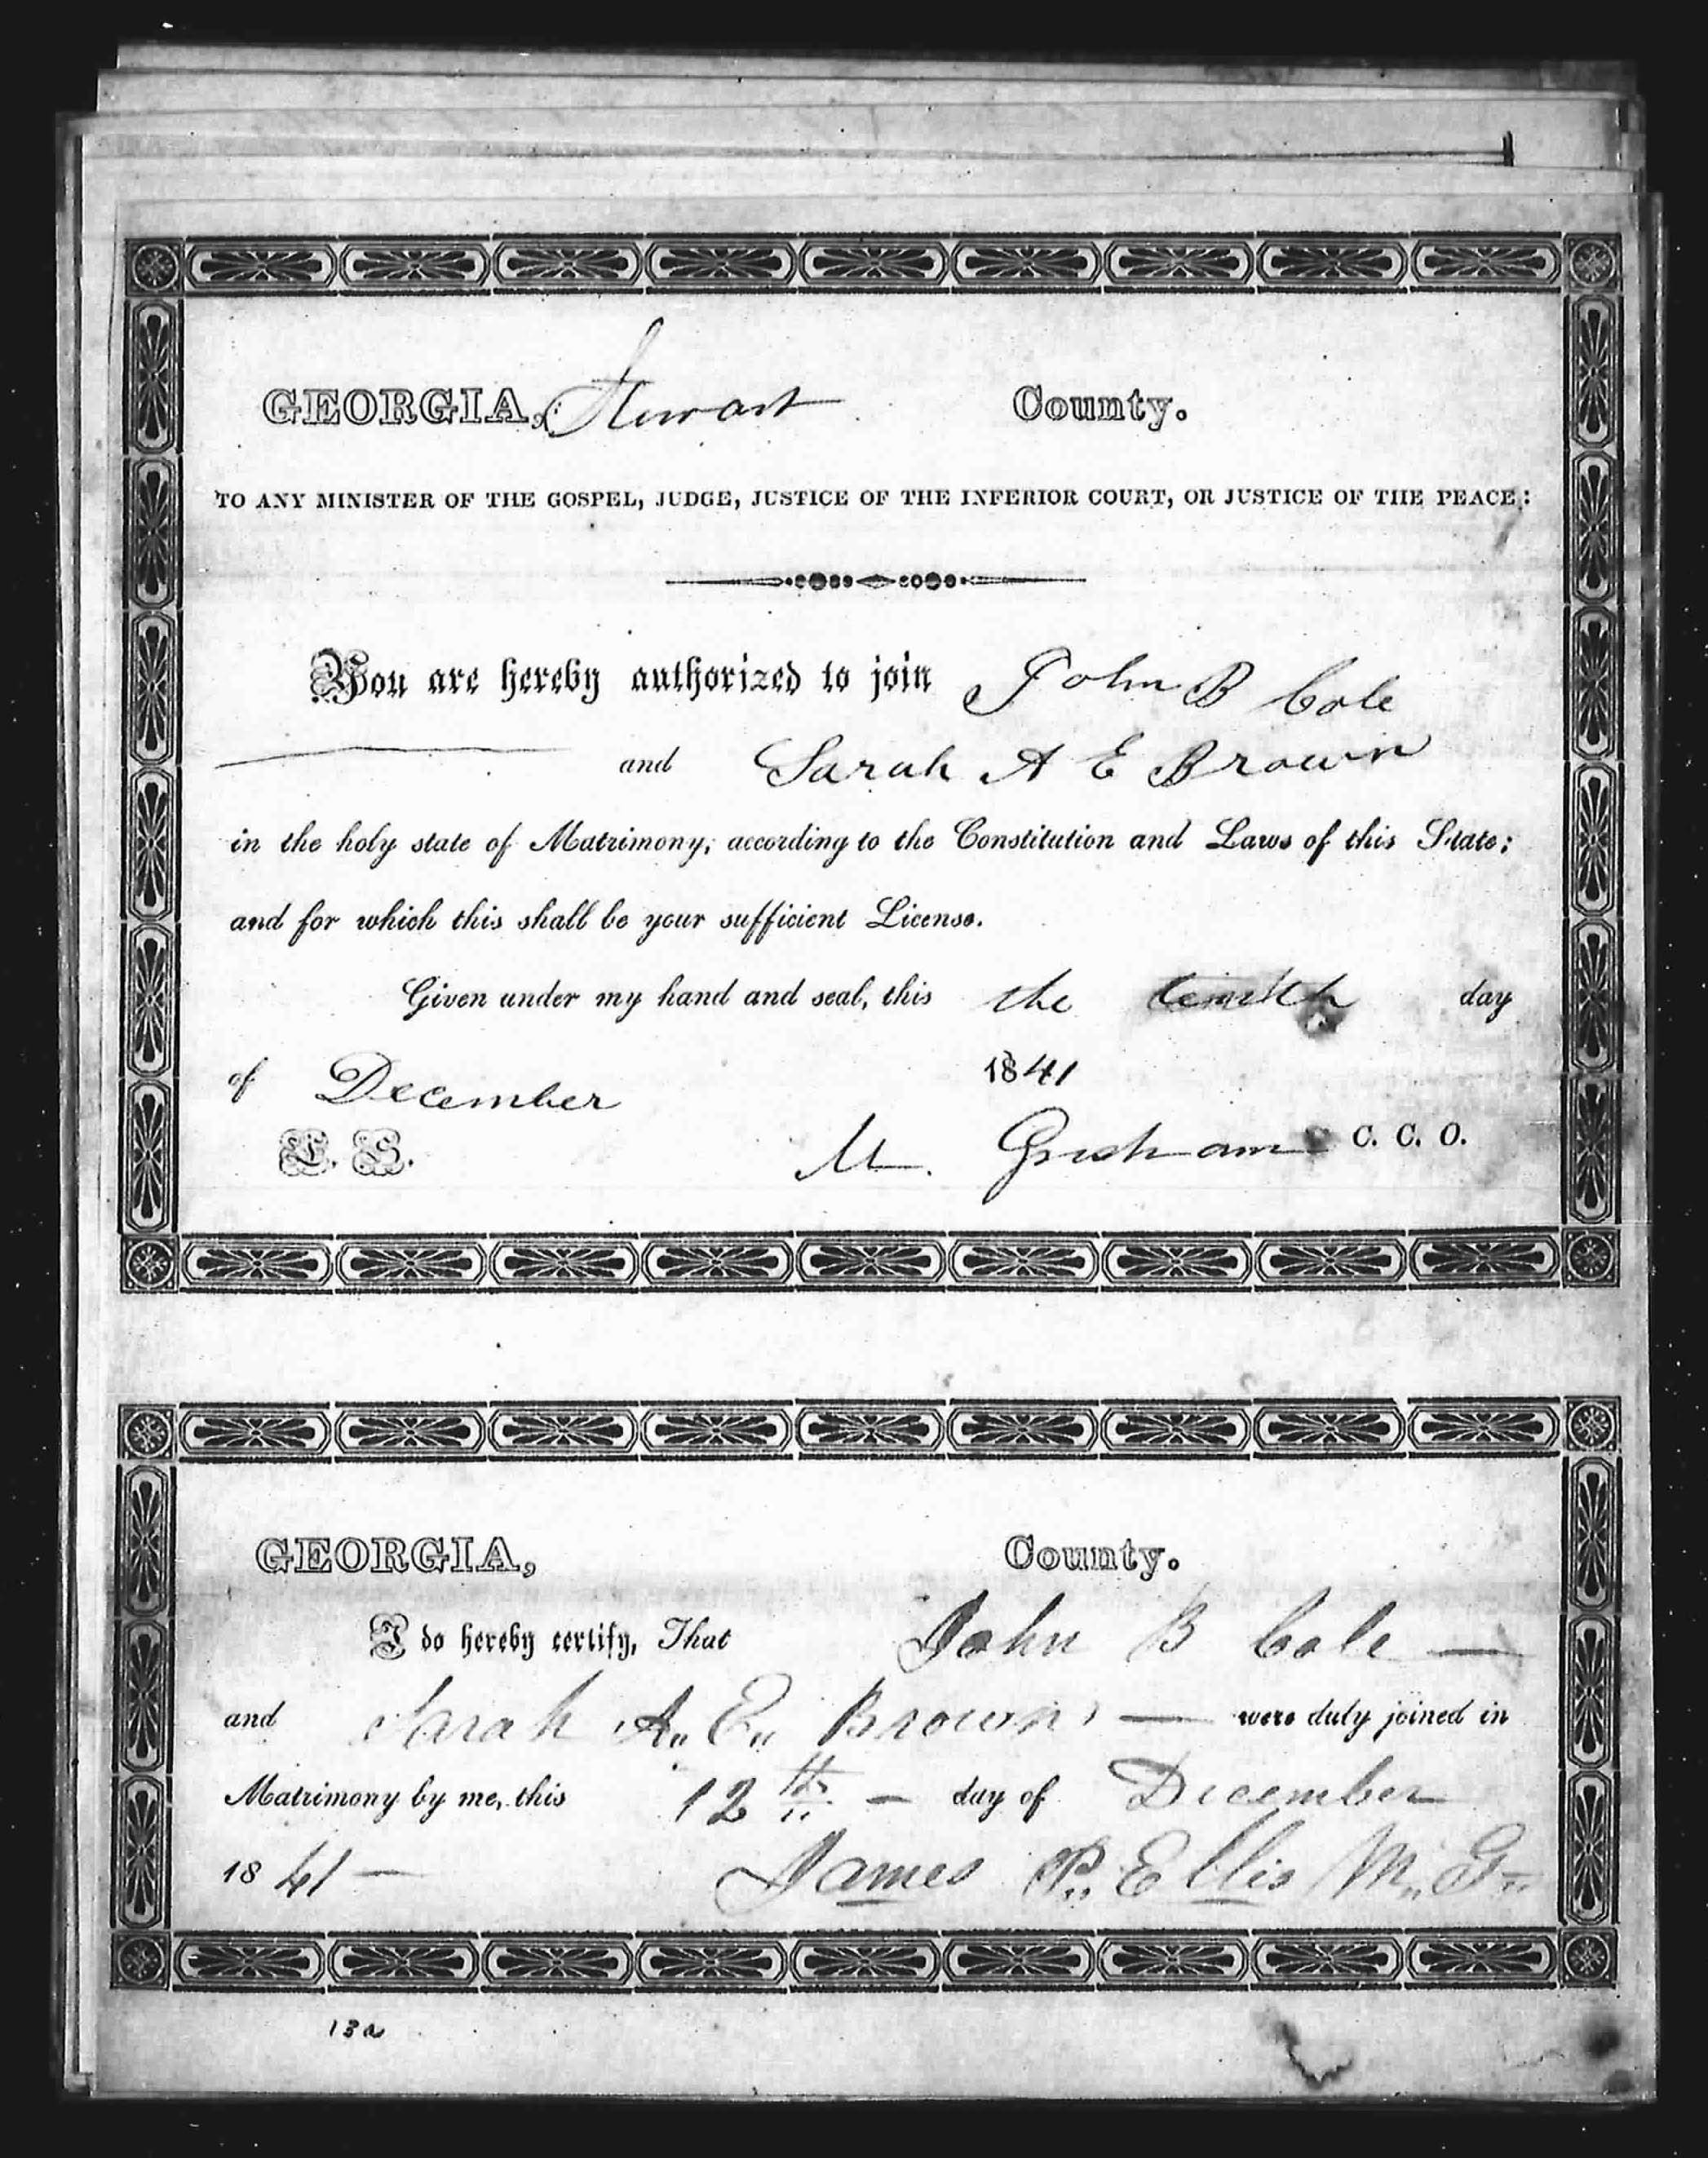 GEORGIA, Stewart County.
TO ANY MINISTER OF THE GOSPEL, JUDGE, JUSTICE OF THE INFERIOR COURT, OR JUSTICE OF THE PEACE:
You are hereby authorized to join John B Cole
and Sarah A E Brown
in the holy state of Matrimony, according to the Constitution and Laws of this State;
and for which this shall be your sufficient License.
Given under my hand and seal, this the tenth day
of December 1841
L. S. M. Gresham C. C. O.
GEORGIA, County.
I do hereby certify, That John B Cole
and Sarah A. E. Brown were duly joined in
Matrimony by me, this 12th day of December
1841 James P. Ellis M. G.
13a